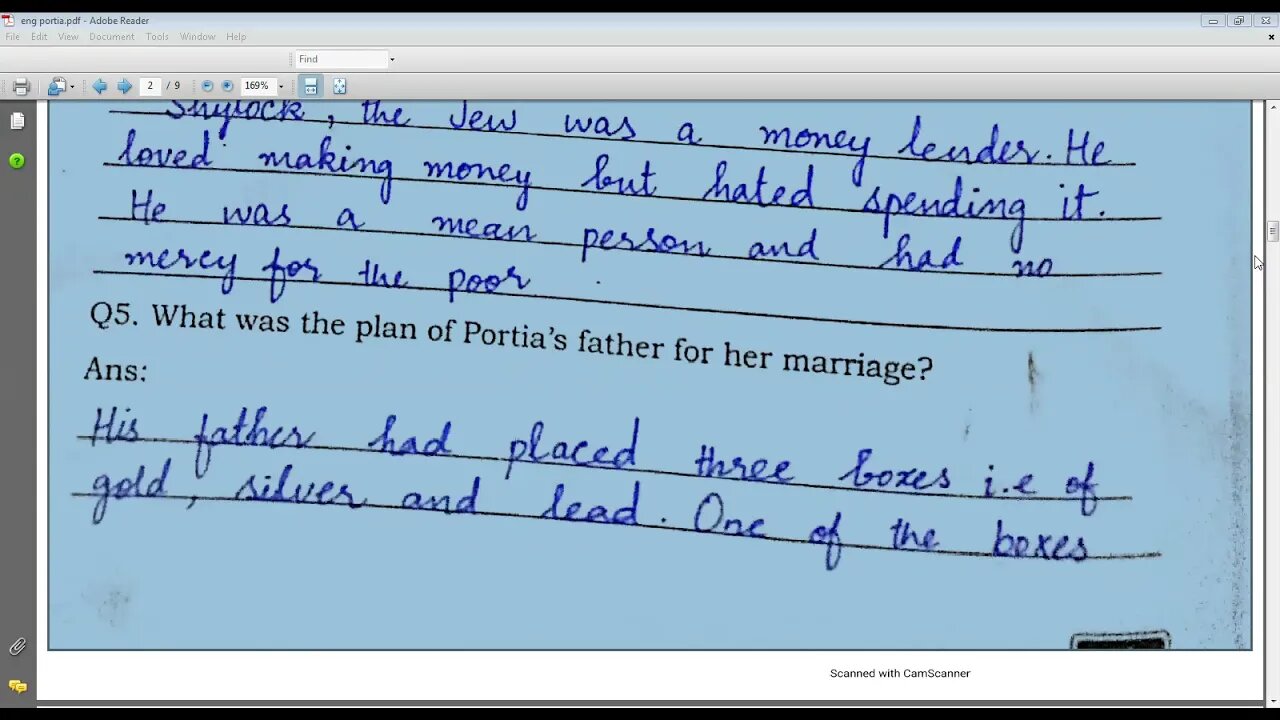 eng portia.pdf - Adobe Reader
File Edit View Document Tools Window Help
Find
2 / 9 169%
Shylock, the Jew was a money lender. He
loved making money but hated spending it.
He was a mean person and had no
mercy for the poor
Q5. What was the plan of Portia's father for her marriage?
Ans:
His father had placed three boxes i.e of
gold, silver and lead. One of the boxes
Scanned with CamScanner